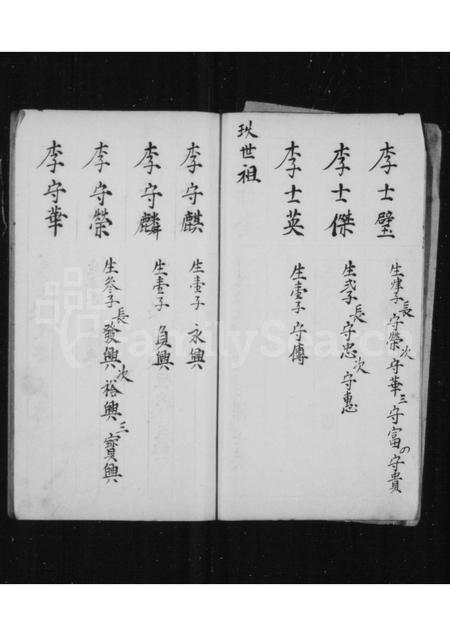 李士璧 生肆子 長守榮 次守華 三守富 の守貴
李士傑 生弍子 長守忠 次守惠
李士英 生壹子 守傳
世祖
李守麒 生壹子 永興
李守麟 生壹子 負興
李守榮 生叄子 長發興 次裕興 三寶興
李守華
FamilySearch